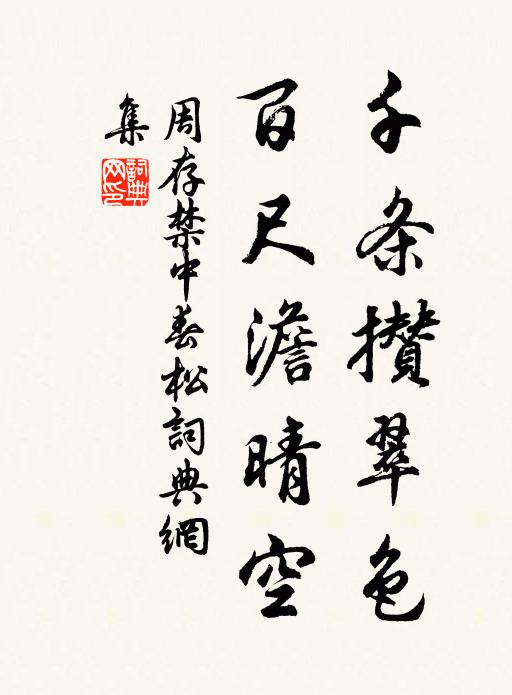 千条攢翠色
百尺澹晴空
周存禁中春松詞典網
集
詞典網印